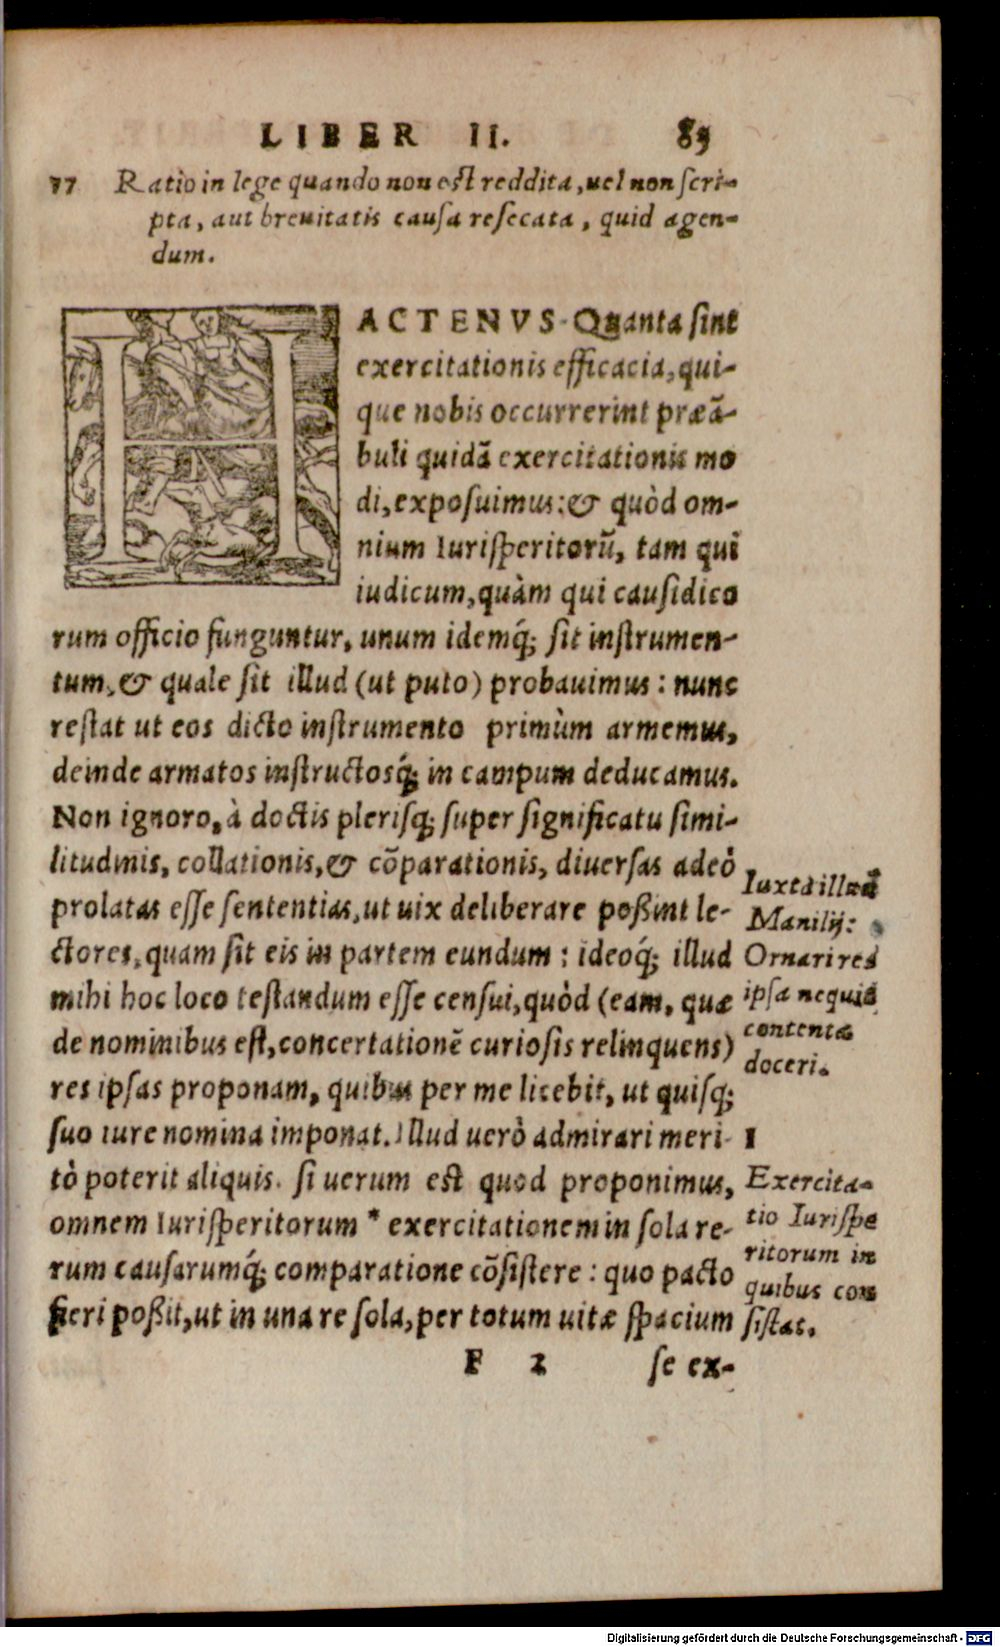 LIBER II. 83
77 Ratio in lege quando non est reddita, uel non scri-
pta, aut breuitatis causa resecata, quid agen-
dum.
HACTENVS Quanta sint
exercitationis efficacia, qui-
que nobis occurrerint præã-
buli quidã exercitationis mo
di, exposuimus: & quòd om-
nium Iurisperitorũ, tam qui
iudicum, quàm qui causidico
rum officio funguntur, unum idemq́; sit instrumen-
tum, & quale sit illud (ut puto) probauimus: nunc
restat ut eos dicto instrumento primùm armemus,
deinde armatos instructosq́; in campum deducamus.
Non ignoro, à doctis plerisq; super significatu simi-
litudinis, collationis, & cõparationis, diuersas adeò
prolatas esse sententias, ut uix deliberare poßint le-
ctores, quam sit eis in partem eundum: ideoq́; illud
mihi hoc loco testandum esse censui, quòd (eam, quæ
de nominibus est, concertationẽ curiosis relinquens)
res ipsas proponam, quibus per me licebit, ut quisq;
suo iure nomina imponat. Illud uerò admirari meri-
tò poterit aliquis. si uerum est quod proponimus,
omnem Iurisperitorum * exercitationem in sola re-
rum causarumq́; comparatione cõsistere: quo pacto
fieri poßit, ut in una re sola, per totum uitæ spacium
F 2 se ex-
Iuxta illud
Manilij:
Ornari res
ipsa negat
contenta
doceri.
1
Exercita-
tio Iurispe
ritorum in
quibus con
sistat.
Digitalisierung gefördert durch die Deutsche Forschungsgemeinschaft - DFG